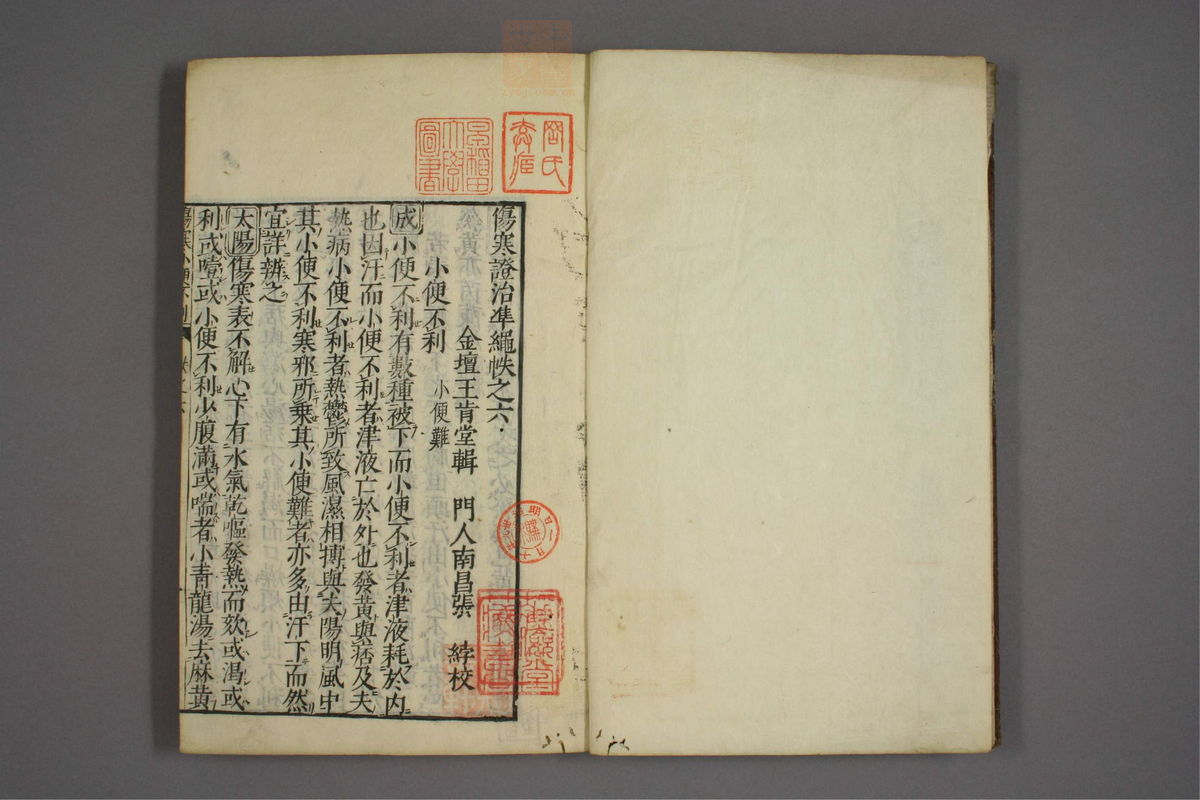 傷寒證治準繩帙之六
金壇王肯堂輯 門人南昌張 綍校
小便不利 小便難
成小便不利有數種被下而小便不利者津液耗於内
也因汗而小便不利者津液亡於外也發黃與痞及夫
熱病小便不利者熱鬱所致風濕相搏與夫陽明風中
其小便不利寒邪所乘其小便難者亦多由汗下而然
宜詳辨之
太陽傷寒表不解心下有水氣乾嘔發熱而欬或渴或
利或噎或小便不利少腹滿或喘者小青龍湯去麻黃
傷寒小便不利
早稻田大學圖書